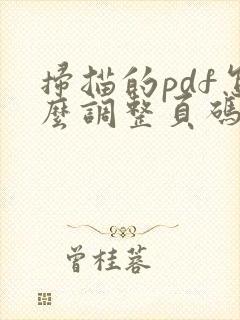 掃描的pdf怎
麼調整頁碼
曾桂蓉